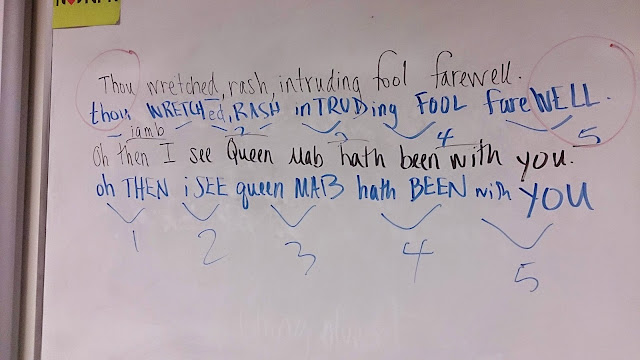 Thou wretched, rash, intruding fool farewell.
thou WRETCHed, RASH inTRUDing FOOL fareWELL.
iamb 2 3 4 5
Oh then I see Queen Mab hath been with you.
oh THEN i SEE queen MAB hath BEEN with YOU
1 2 3 4 5